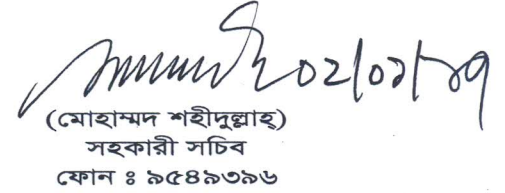 (মোহাম্মদ শহীদুল্লাহ্)
সহকারী সচিব
ফোন ঃ ৯৫৪৯৩৯৬